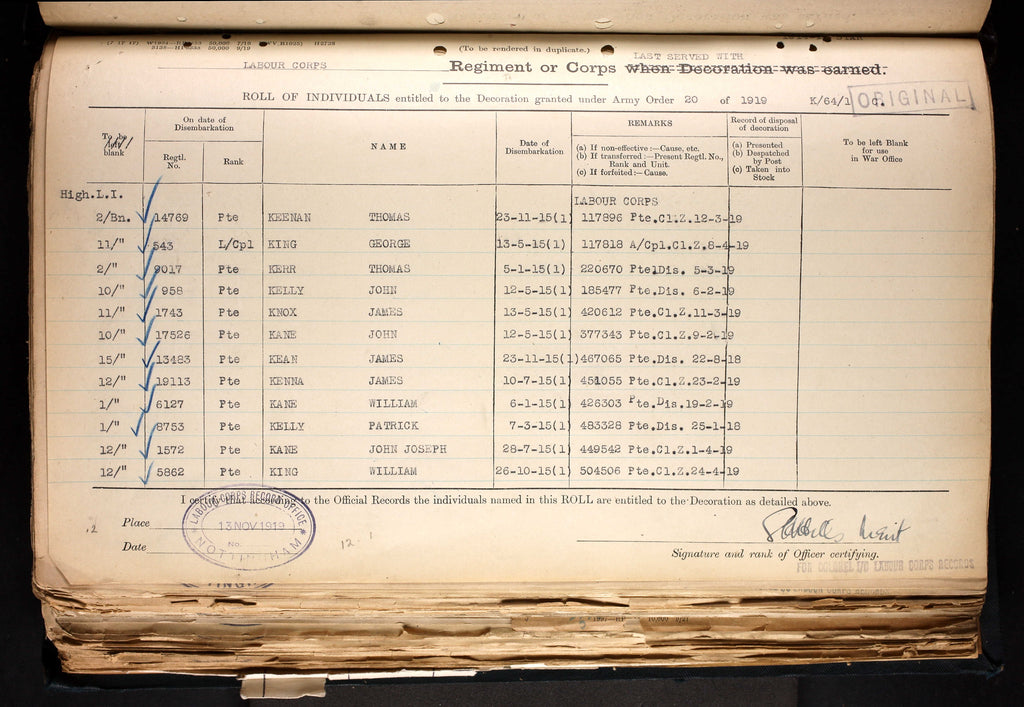 (To be rendered in duplicate.)
LABOUR CORPS Regiment or Corps LAST SERVED WITH when Decoration was earned.
ROLL OF INDIVIDUALS entitled to the Decoration granted under Army Order 20 of 1919 K/64/1
ORIGINAL
To be blank
On date of Disembarkation
Regtl. No.
Rank
NAME
Date of Disembarkation
REMARKS
(a) If non-effective:—Cause, etc.
(b) If transferred:—Present Regtl. No., Rank and Unit.
(c) If forfeited:—Cause.
Record of disposal of decoration
(a) Presented
(b) Despatched by Post
(c) Taken into Stock
To be left Blank for use in War Office
High.L.I.
LABOUR CORPS
2/Bn. 14769 Pte KEENAN THOMAS 23-11-15(1) 117896 Pte.Cl.Z.12-3-19
11/" 543 L/Cpl KING GEORGE 13-5-15(1) 117818 A/Cpl.Cl.Z.8-4-19
2/" 9017 Pte KERR THOMAS 5-1-15(1) 220670 Pte.Dis. 5-3-19
10/" 958 Pte KELLY JOHN 12-5-15(1) 185477 Pte.Dis. 6-2-19
11/" 1743 Pte KNOX JAMES 13-5-15(1) 420612 Pte.Cl.Z.11-3-19
10/" 17526 Pte KANE JOHN 12-5-15(1) 377343 Pte.Cl.Z.9-2-19
15/" 13483 Pte KEAN JAMES 23-11-15(1) 467065 Pte.Dis. 22-8-18
12/" 19113 Pte KENNA JAMES 10-7-15(1) 451055 Pte.Cl.Z.23-2-19
1/" 6127 Pte KANE WILLIAM 6-1-15(1) 426303 Pte.Dis.19-2-19
1/" 8753 Pte KELLY PATRICK 7-3-15(1) 483328 Pte.Dis. 25-1-18
12/" 1572 Pte KANE JOHN JOSEPH 28-7-15(1) 449542 Pte.Cl.Z.1-4-19
12/" 5862 Pte KING WILLIAM 26-10-15(1) 504506 Pte.Cl.Z.24-4-19
I certify that according to the Official Records the individuals named in this ROLL are entitled to the Decoration as detailed above.
Place
LABOUR CORPS RECORD OFFICE
13 NOV 1919
No.
NOTTINGHAM
Date
12.1
Signature and rank of Officer certifying.
FOR COLONEL I/C LABOUR CORPS RECORDS